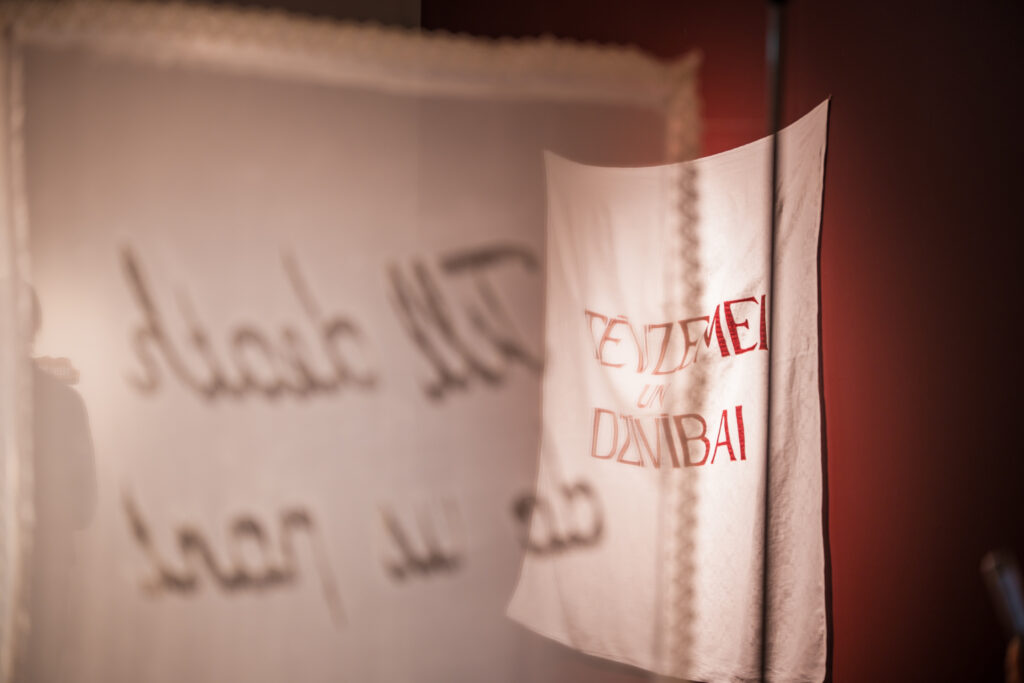 Till death
do us part
TĒVZEMEI
UN
DZĪVĪBAI